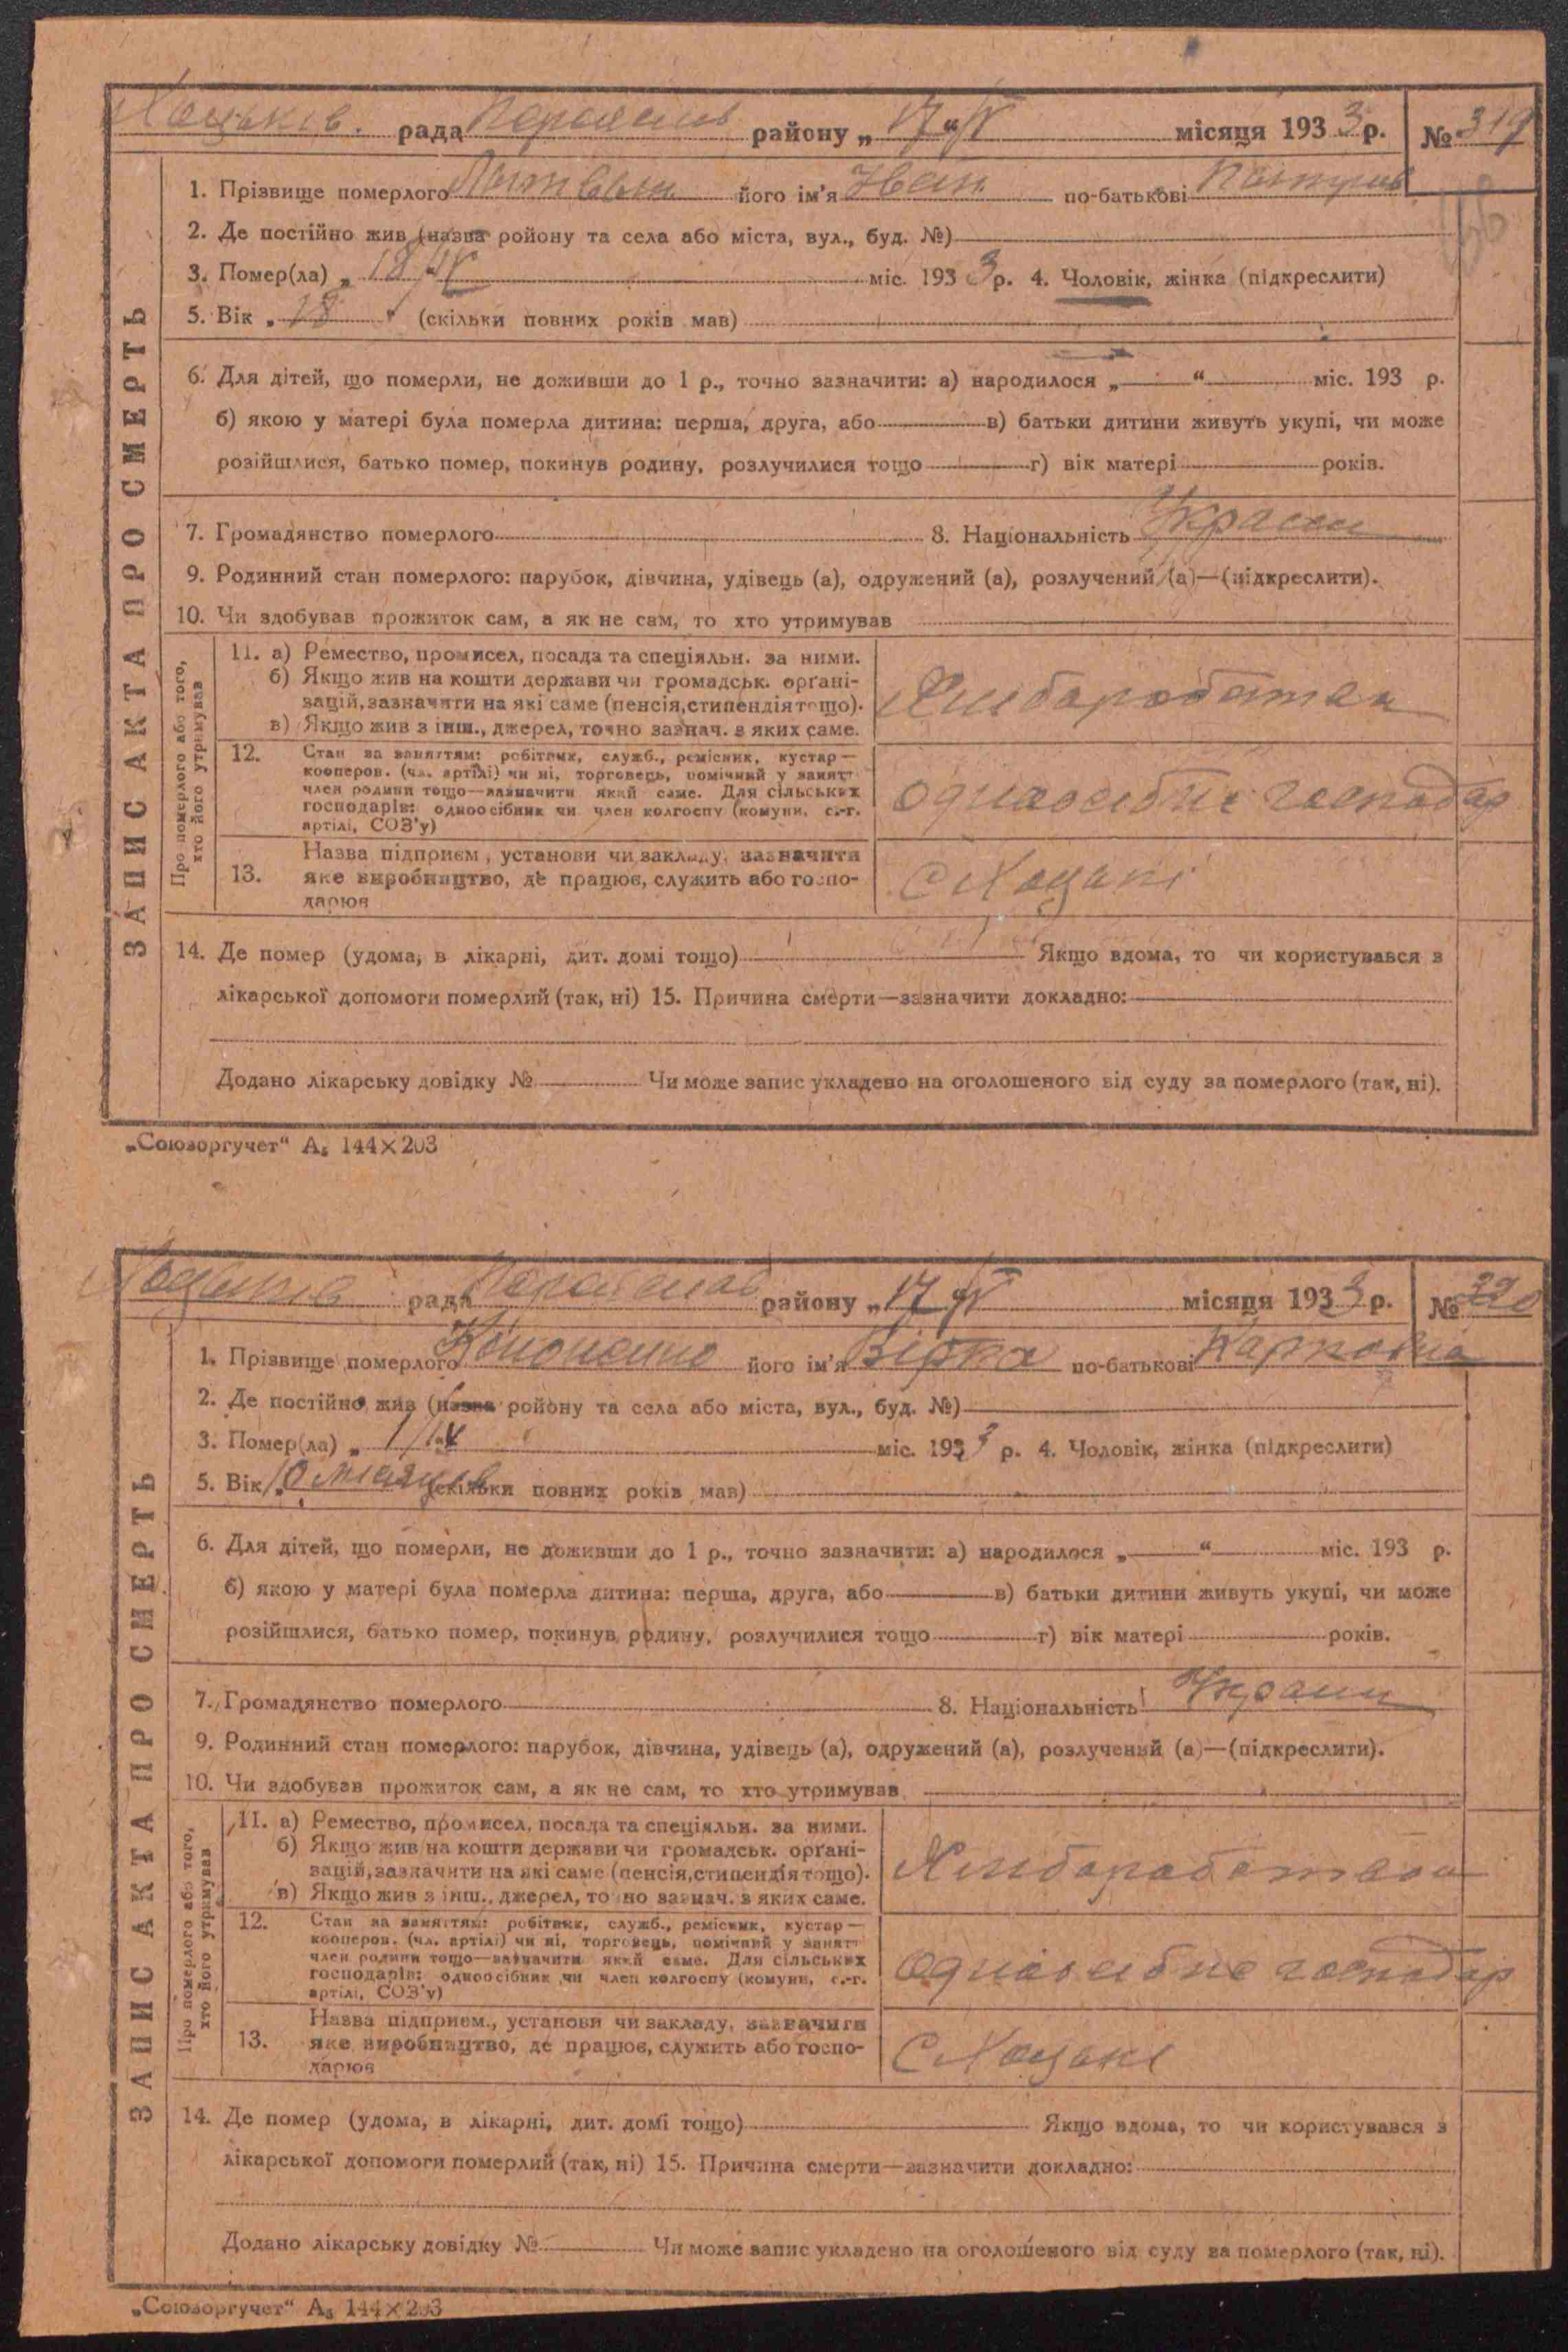 Хоцьків. рада Переяслів району „ 17 “ IV місяця 193 3 р. № 319
1. Прізвище померлого Литвин його ім'я Іван по-батькові
2. Де постійно жив (назва ройону та села або міста, вул., буд. №)
3. Помер(ла) „ міс. 193 3 р. 4. Чоловік, жінка (підкреслити)
5. Вік „ (скільки повних років мав)
6. Для дітей, що померли, не доживши до 1 р., точно зазначити: а) народилося „ “ міс. 193 р.
б) якою у матері була померла дитина: перша, друга, або в) батьки дитини живуть укупі, чи може
розійшлися, батько помер, покинув родину, розлучилися тощо г) вік матері років.
7. Громадянство померлого 8. Національність Україн
9. Родинний стан померлого: парубок, дівчина, удівець (а), одружений (а), розлучений (а)—(підкреслити).
10. Чи здобував прожиток сам, а як не сам, то хто утримував
ЗАПИС АКТА ПРО СМЕРТЬ
Про померлого або того, хто його утримував
11. а) Ремество, промисел, посада та спеціяльн. за ними.
б) Якщо жив на кошти держави чи громадськ. орґані-
зацій, зазначити на які саме (пенсія, стипендія тощо).
в) Якщо жив з інш., джерел, точно зазнач. з яких саме.
Хлиборобство
12. Стан за заняттям: робітник, служб., ремісник, кустар—
кооперов. (чл. артілі) чи ні, торговець, помічний у занятт
член родини тощо—зазначити який саме. Для сільських
господарів: одноосібник чи член колгоспу (комуни, с.-г.
артілі, СОЗ'у)
одноосебне господар
13. Назва підприєм., установи чи закладу, зазначити
яке виробництво, де працює, служить або госпо-
дарює
С Хоцькі
14. Де помер (удома, в лікарні, дит. домі тощо) Якщо вдома, то чи користувався з
лікарської допомоги померлий (так, ні) 15. Причина смерти—зазначити докладно:
Додано лікарську довідку № Чи може запис укладено на оголошеного від суду за померлого (так, ні).
„Союзоргучет“ А₅ 144×203
Хоцьків рада Переяслав району „ 17 “ IV місяця 193 3 р. № 320
1. Прізвище померлого Кононенко його ім'я Вірка по-батькові Карповна
2. Де постійно жив (назва ройону та села або міста, вул., буд. №)
3. Помер(ла) „ 1/IV міс. 193 3 р. 4. Чоловік, жінка (підкреслити)
5. Вік 10 місяців (скільки повних років мав)
6. Для дітей, що померли, не доживши до 1 р., точно зазначити: а) народилося „ “ міс. 193 р.
б) якою у матері була померла дитина: перша, друга, або в) батьки дитини живуть укупі, чи може
розійшлися, батько помер, покинув родину, розлучилися тощо г) вік матері років.
7. Громадянство померлого 8. Національність Україн
9. Родинний стан померлого: парубок, дівчина, удівець (а), одружений (а), розлучений (а)—(підкреслити).
10. Чи здобував прожиток сам, а як не сам, то хто утримував
ЗАПИС АКТА ПРО СМЕРТЬ
Про померлого або того, хто його утримував
11. а) Ремество, промисел, посада та спеціяльн. за ними.
б) Якщо жив на кошти держави чи громадськ. орґані-
зацій, зазначити на які саме (пенсія, стипендія тощо).
в) Якщо жив з інш., джерел, точно зазнач. з яких саме.
Хлиборобство
12. Стан за заняттям: робітник, служб., ремісник, кустар—
кооперов. (чл. артілі) чи ні, торговець, помічний у занятт
член родини тощо—зазначити який саме. Для сільських
господарів: одноосібник чи член колгоспу (комуни, с.-г.
артілі, СОЗ'у)
одноосебне господар
13. Назва підприєм., установи чи закладу, зазначити
яке виробництво, де працює, служить або госпо-
дарює
С Хоцькі
14. Де помер (удома, в лікарні, дит. домі тощо) Якщо вдома, то чи користувався з
лікарської допомоги померлий (так, ні) 15. Причина смерти—зазначити докладно:
Додано лікарську довідку № Чи може запис укладено на оголошеного від суду за померлого (так, ні).
„Союзоргучет“ А₅ 144×203